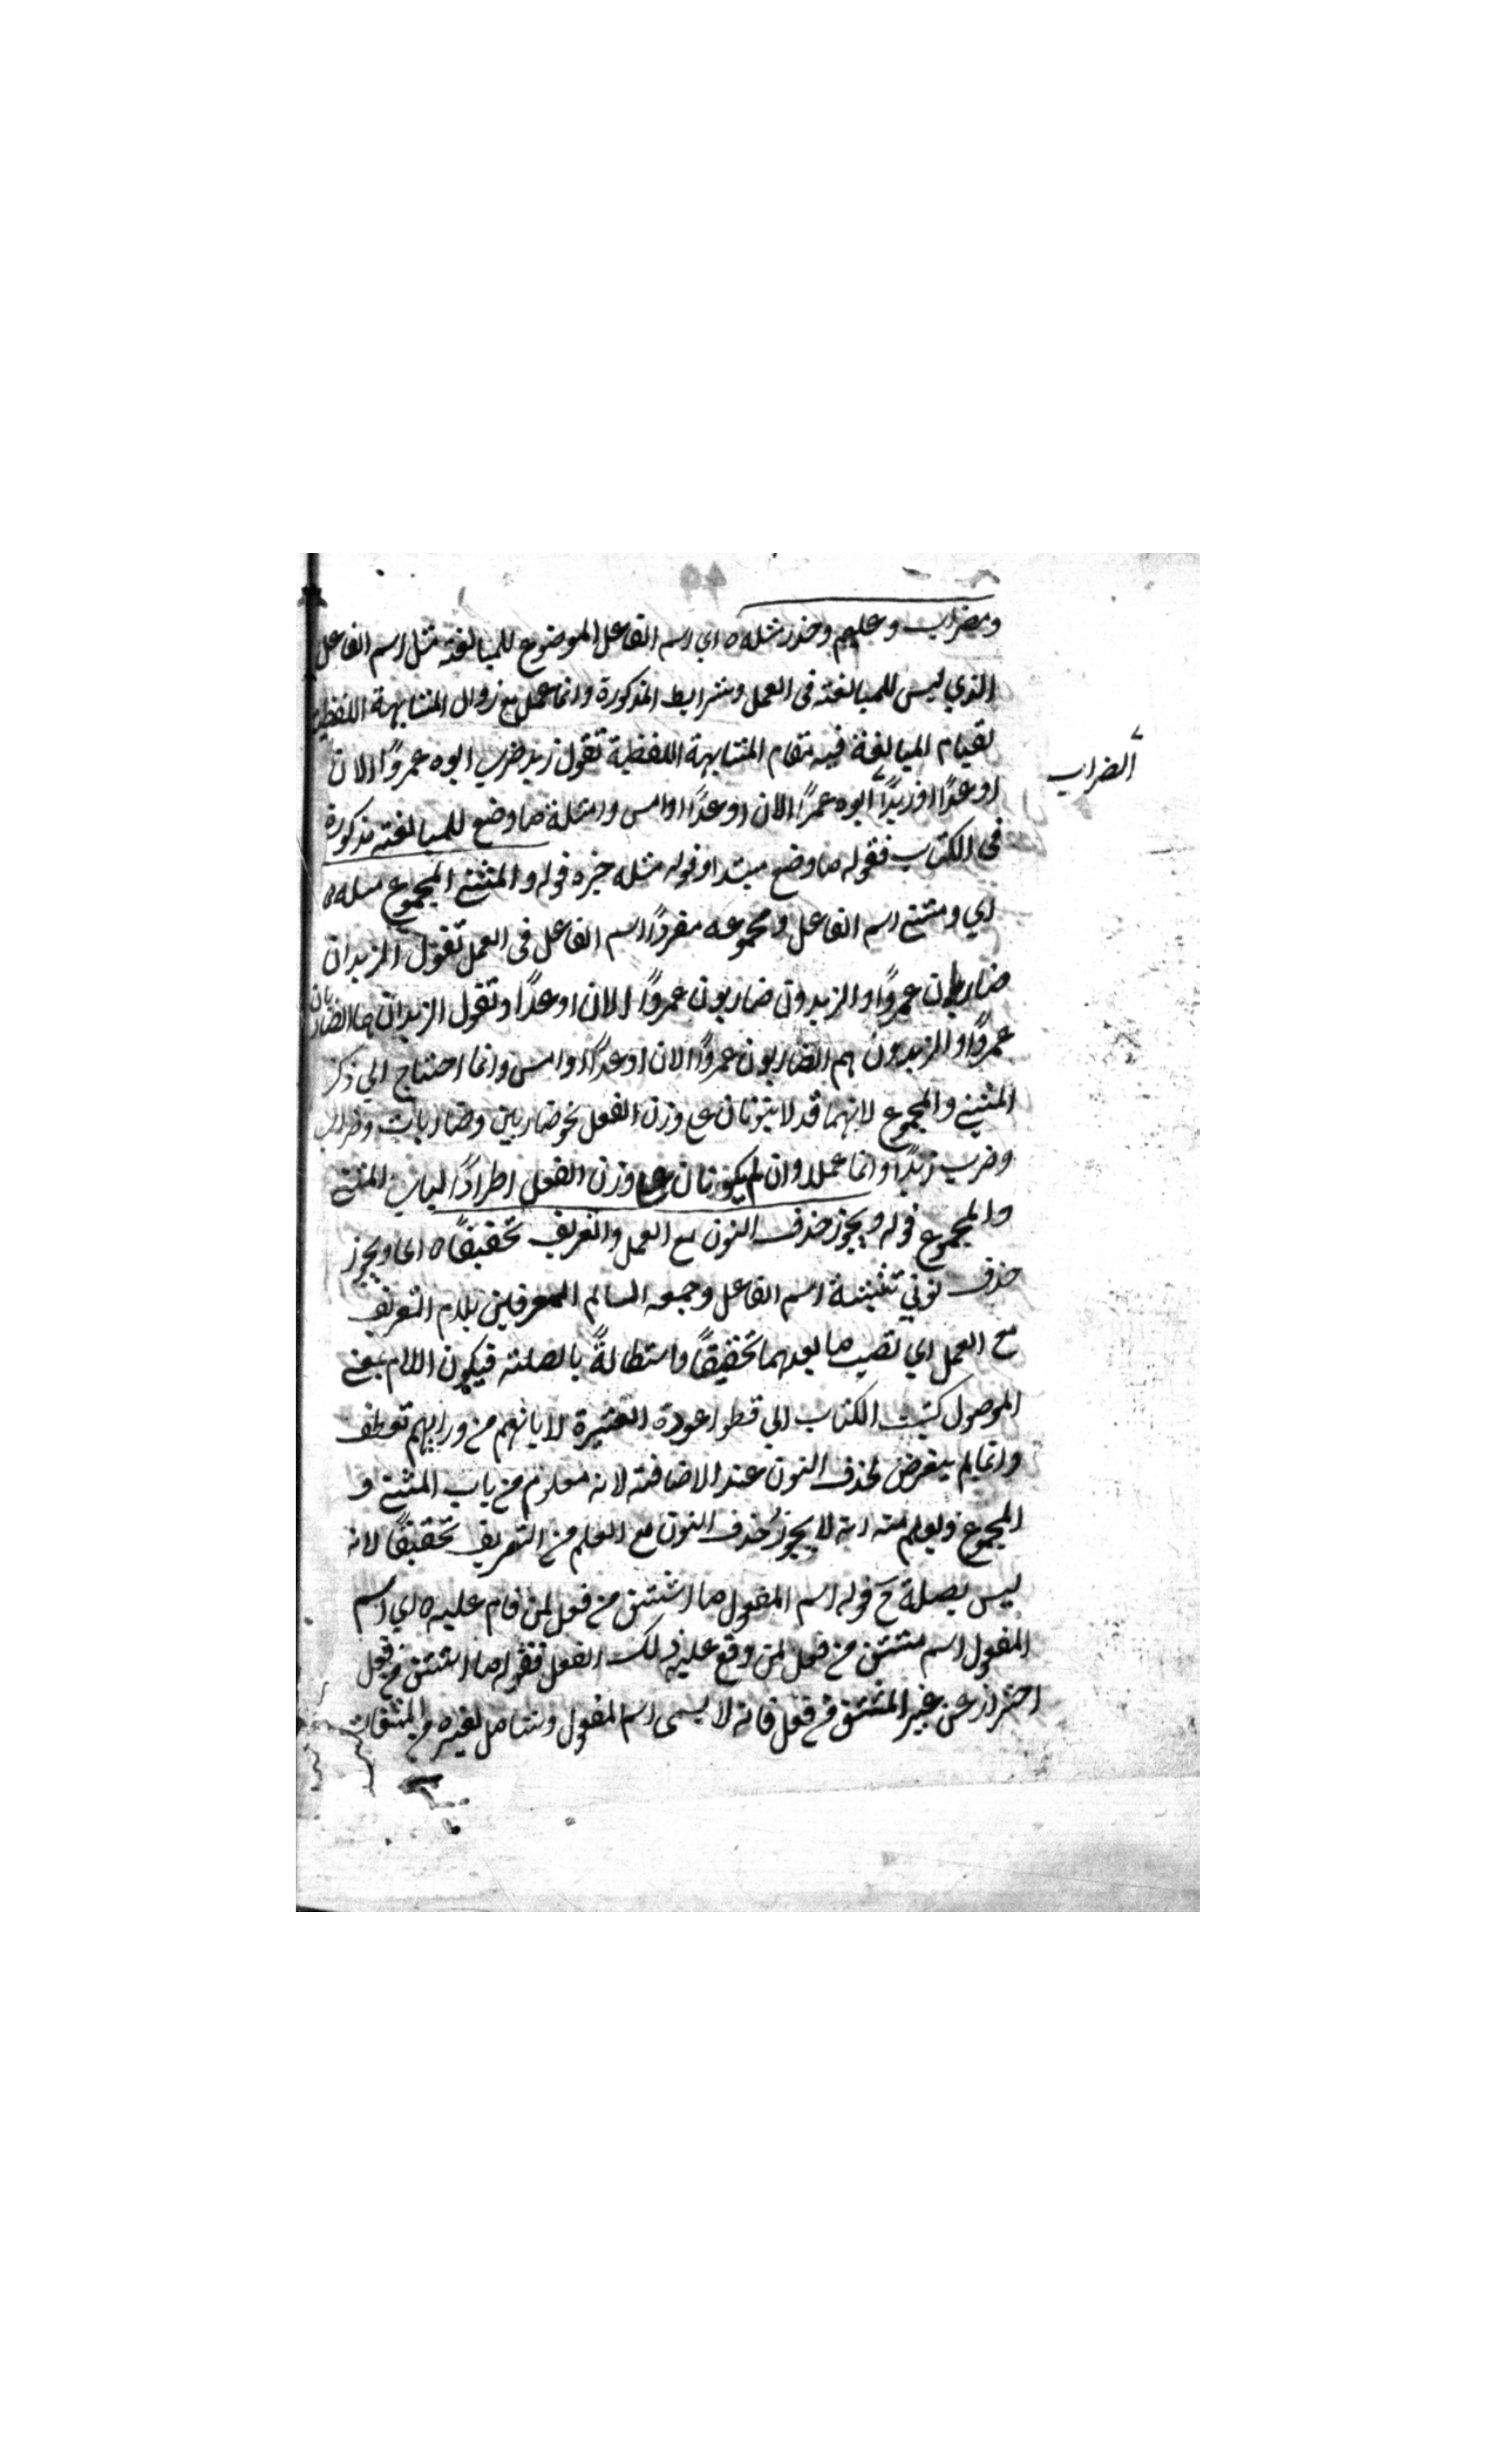 ومضراب وعليم وحذر مثله ه اي اسم الفاعل الموضوع للمبالغة مثل اسم الفاعل
الذي ليس للمبالغة في العمل وشرايط المذكورة وانما عمل مع زوال المشابهة اللفظية
لقيام المبالغة فيه مقام المشابهة اللفظية تقول زيد ضراب ابوه عمروًا الان
الضراب
او غدًا او زيدًا ابوه عمرًا الان او غدًا او امس وامثلة ما وضع للمبالغة مذكورة
في الكتاب فقوله ما وضع مبتدا وقوله مثله خبره قوله والمثنى المجموع مثله ه
اي ومثنى اسم الفاعل ومجموعه مفردًا اسم الفاعل في العمل تقول الزيدان
ضاربان عمروًا والزيدون ضاربون عمروًا الان او غدًا وتقول الزيدان هما الضاربان
عمروًا والزيدون هم الضاربون عمروًا الان او غدًا او امس وانما احتاج الي ذكر
المثنى والمجموع لانهما قد لا يتزنان على وزن الفعل نحو ضاربين وضاربات وضراب
وضرب زيدًا وانما عملا وان لم يكونان على وزن الفعل اطرادًا لباب المثنى
والمجموع قوله ويجوز حذف النون مع العمل والتعريف تخفيفًا ه اي ويجوز
حذف نوني تثنية اسم الفاعل وجمعه السالم المعرفين بلام التعريف
مع العمل اي نصب ما بعدهما تخفيفًا واستطالةً بالصلة فيكون اللام بمعنى
الموصول كبيت الكتاب الي قطو اعودة العشيرة لا ياتهم من ورايهم توطف
وانما لم يتعرض لحذف النون عند الاضافة لانه معلوم من باب المثنى و
المجموع ويعلم منه انه لا يجوز حذف النون مع العلم من التعريف تخفيفًا لانه
ليس بصلة ح قوله اسم المفعول ما اشتق من فعل لمن قام عليه ه اي اسم
المفعول اسم مشتق من فعل لمن وقع عليه ذلك الفعل فقوله ما اشتق من فعل
احتراز عن غير المشتق من فعل فانه لا يسمى اسم المفعول وشامل لغيره من المشتقات